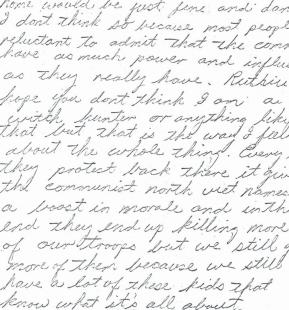 home would be just fine and dan
I dont think so because most people
reluctant to admit that the comm
have as much power and influ
as they really have. Ruthie
hope you dont think I am a
witch hunter or anything like
that but that is the way I feel
about the whole thing. Every
they protest back there it give
the communist north viet names
a boost in morale and in th
end they end up killing more
of our troops but we still g
more of them because we still
have a lot of these kids that
know what it's all about.